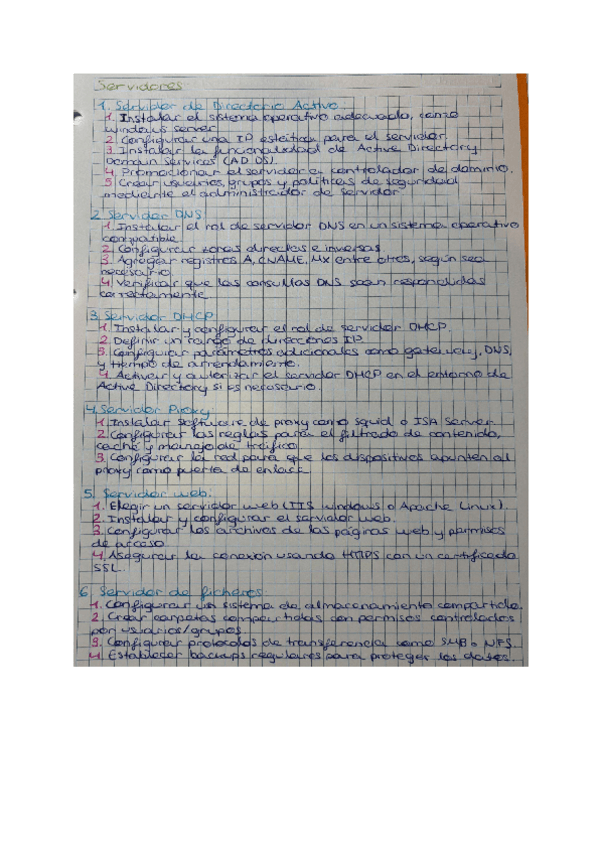 Servidores
1. Servidor de Directorio Activo:
1. Instalar el sistema operativo adecuado, como
windows server
2. Configurar una IP estática para el servidor.
3. Instalar la funcionalidad de Active Directory
Domain Services (AD DS).
4. Promocionar el servidor a controlador de dominio.
5. Crear usuarios, grupos y políticas de seguridad
mediante el administrador de servidor
2. Servidor DNS
1. Instalar el rol de servidor DNS en un sistema operativo
compatible
2. Configurar zonas directas e inversas
3. Agregar registros A, CNAME, MX entre otros, según sea
necesario.
4. Verificar que las consultas DNS sean respondidas
correctamente
3. Servidor DHCP
1. Instalar y configurar el rol de servidor DHCP.
2. Definir un rango de direcciones IP.
3. Configurar parámetros adicionales como gateway, DNS,
y tiempo de arrendamiento.
4. Activar y autorizar el servidor DHCP en el entorno de
Active Directory si es necesario.
4. Servidor Proxy:
1. Instalar software de proxy como squid o ISA Server
2. Configurar las reglas para el filtrado de contenido,
caché y manejo de tráfico
3. Configurar la red para que los dispositivos apunten al
proxy como puerta de enlace
5. Servidor web:
1. Elegir un servidor web (IIS windows o Apache Linux).
2. Instalar y configurar el servidor web.
3. Configurar los archivos de las páginas web y permisos
de acceso
4. Asegurar la conexión usando HTTPS con un certificado
SSL.
6. Servidor de ficheros:
1. Configurar un sistema de almacenamiento compartido.
2. Crear carpetas compartidas con permisos controlados
por usuarios/grupos
3. Configurar protocolos de transferencia como SMB o NFS.
4. Establecer backups regulares para proteger los datos.